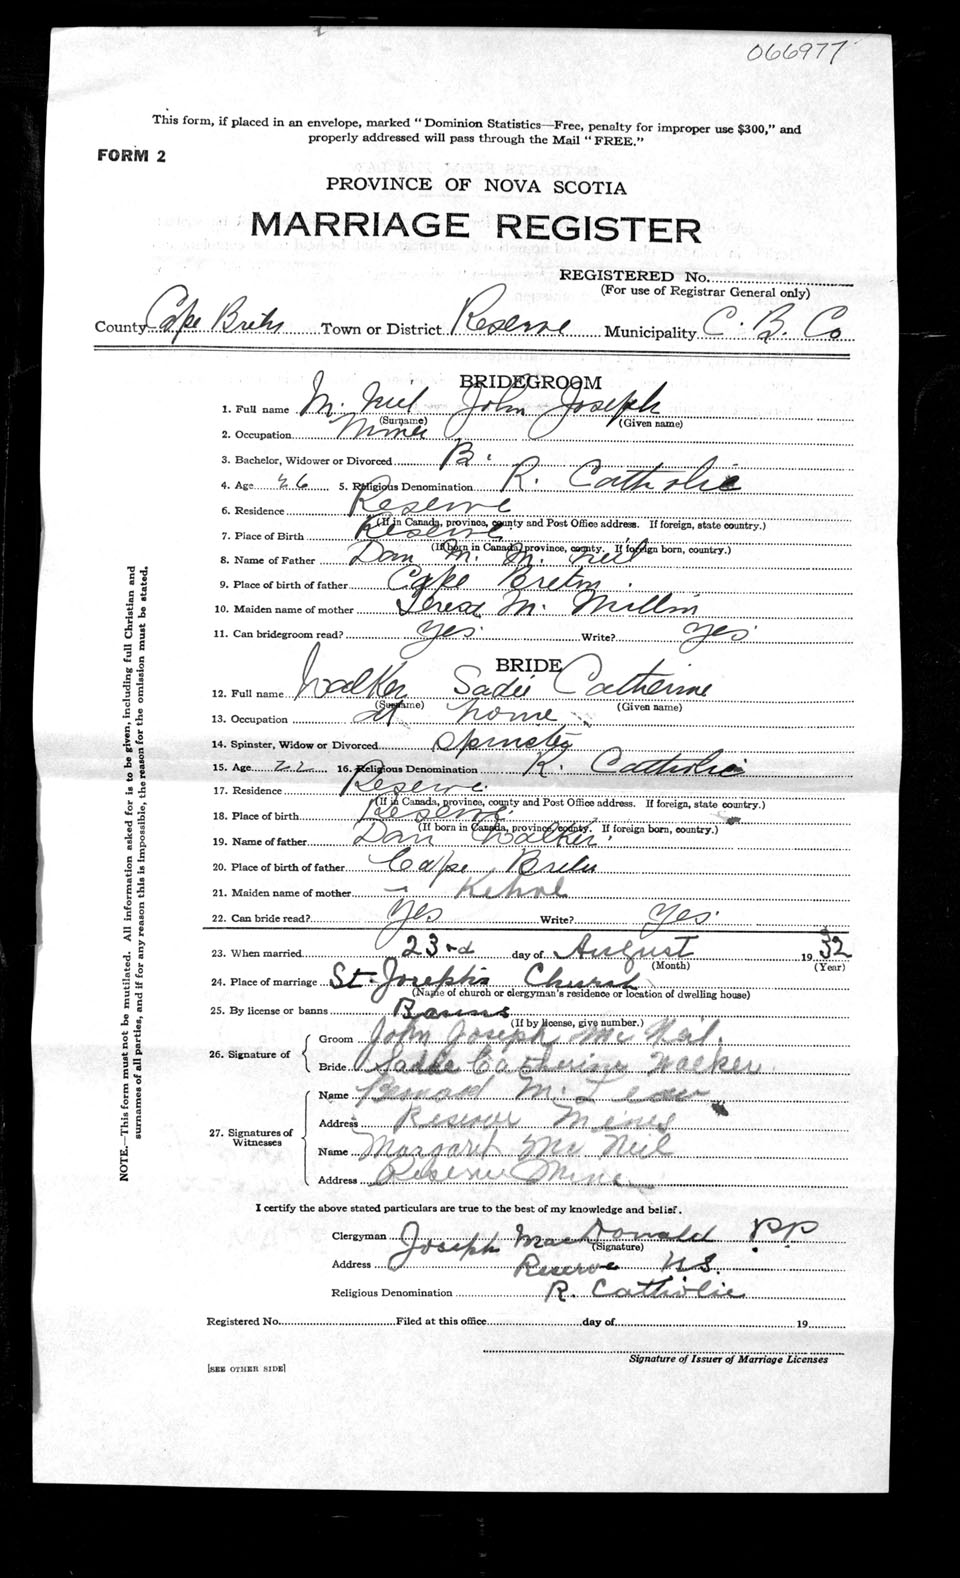 066977
This form, if placed in an envelope, marked "Dominion Statistics—Free, penalty for improper use $300," and
properly addressed will pass through the Mail "FREE."
FORM 2
PROVINCE OF NOVA SCOTIA
MARRIAGE REGISTER
REGISTERED No.
(For use of Registrar General only)
County Cape Breton Town or District Reserve Municipality C. B. Co
BRIDEGROOM
1. Full name Mc Neil John Joseph
(Surname) (Given name)
2. Occupation Miner
3. Bachelor, Widower or Divorced B.
4. Age 26 5. Religious Denomination R. Catholic
6. Residence Reserve
(If in Canada, province, county and Post Office address. If foreign, state country.)
7. Place of Birth Reserve
(If born in Canada, province, county. If foreign born, country.)
8. Name of Father Dan M. Mc Neil
9. Place of birth of father Cape Breton.
10. Maiden name of mother Teresa Mc Millin
11. Can bridegroom read? Yes Write? Yes
BRIDE
12. Full name Walker Sadie Catherine
(Surname) (Given name)
13. Occupation at home
14. Spinster, Widow or Divorced Spinster
15. Age 22 16. Religious Denomination R. Catholic
17. Residence Reserve
(If in Canada, province, county and Post Office address. If foreign, state country.)
18. Place of birth Reserve
(If born in Canada, province, county. If foreign born, country.)
19. Name of father Dan Walker
20. Place of birth of father Cape Breton
21. Maiden name of mother — Kehoe
22. Can bride read? Yes Write? Yes.
23. When married 23rd day of August 1932
(Month) (Year)
24. Place of marriage St. Joseph's Church
(Name of church or clergyman's residence or location of dwelling house)
25. By license or banns Banns
(If by license, give number.)
26. Signature of Groom John Joseph Mc Neil.
Bride Sadie Catherine Walker
27. Signatures of Witnesses
Name Bernard Mc
Address Reserve Mines
Name Margaret Mc Neil
Address Reserve Mines
I certify the above stated particulars are true to the best of my knowledge and belief.
Clergyman Joseph MacDonald P.P.
(Signature)
Address Reserve N.S.
Religious Denomination R. Catholic
Registered No. Filed at this office day of 19
Signature of Issuer of Marriage Licenses
[SEE OTHER SIDE]
NOTE.—This form must not be mutilated. All information asked for is to be given, including full Christian and
surnames of all parties, and if for any reason this is impossible, the reason for the omission must be stated.